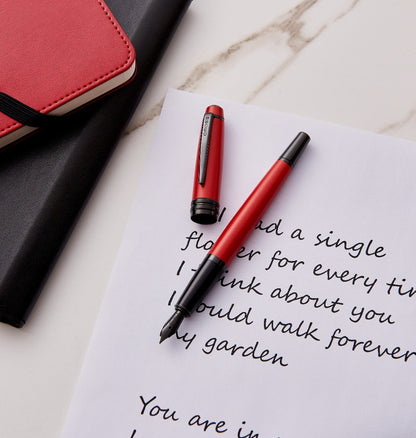 I had a single
flower for every
I think about you
I could walk forever
my garden
You are in